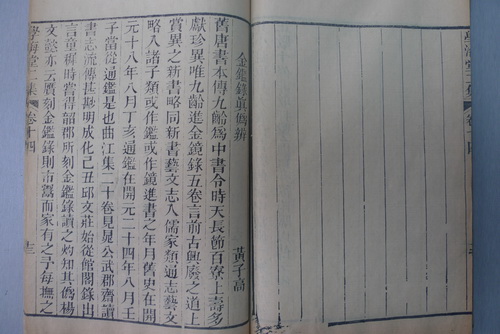 金鑑錄眞僞辨
黃子高
舊唐書本傳九齡爲中書令時天長節百寮上壽多
獻珍異唯九齡進金鏡錄五卷言前古興廢之道上
賞異之新書略同新書藝文志入儒家類通志藝文
略入諸子類或作鑑或作鏡進書之年月舊史在開
元十八年八月丁亥通鑑在開元二十四年八月壬
子當從通鑑是也曲江集二十卷見晁公武郡齋讀
書志流傳甚尟明成化己丑邱文莊始從館閣錄出
言童稚時嘗得韶郡所刻金鑑錄讀之灼知其僞楊
文懿亦云贋刻金鑑錄則市鬻而家有之予每撫之
學海堂二集
卷十四
十三